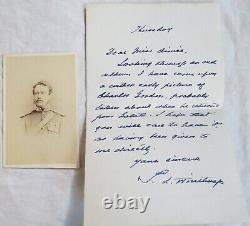 Thursday
Dear Miss
Looking through an old
album I have come upon
a rather early picture of
Charles Gordon, probably
taken about when he returned
from I hope that
you will care to have it,
as having been given to
me directly.
Yours sincerely